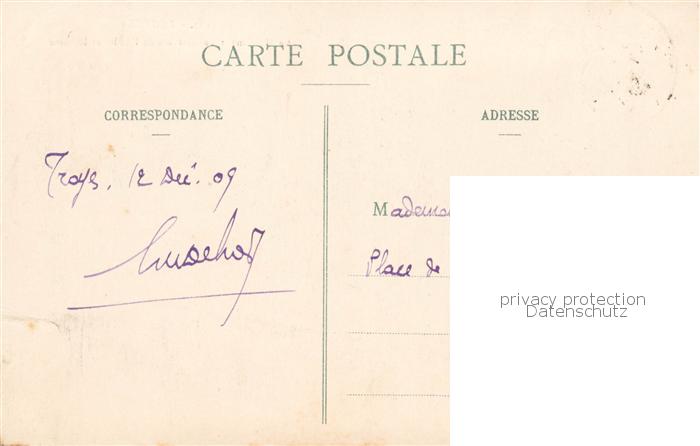 CARTE POSTALE
CORRESPONDANCE
ADRESSE
Troyes, 12 Déc. 09
Mademoi
Place de
privacy protection
Datenschutz